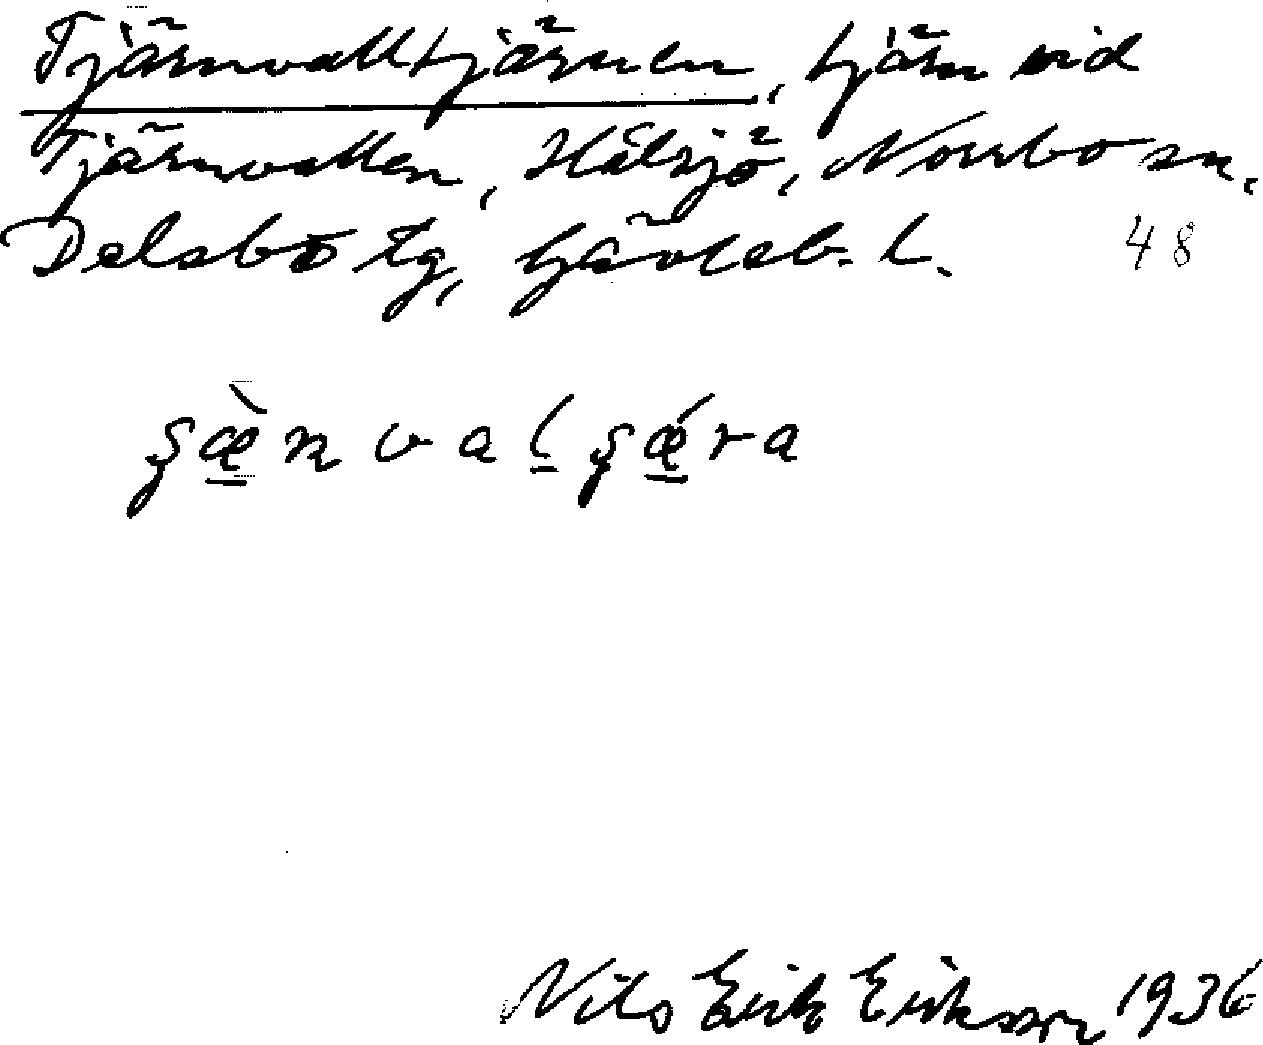 Tjärnvalltjärnen, tjärn vid
Tjärnvallen, Hålsjö, Norrbo sn,
Delsbo tg, Gävleb. l. 48
Nils Erik Eriksson 1936